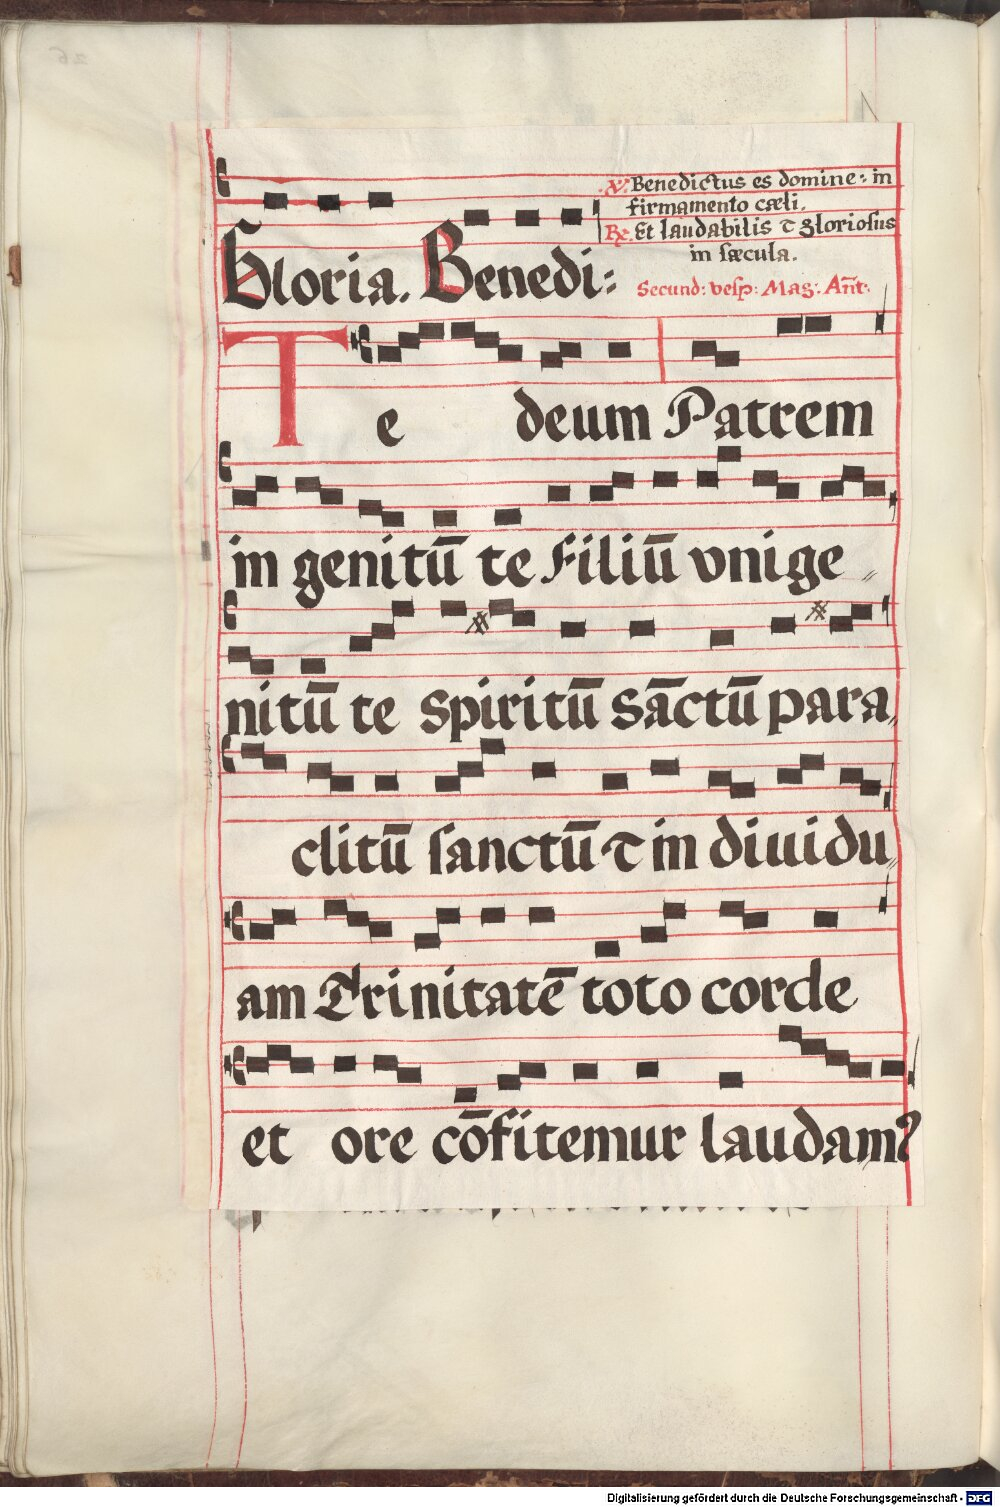 V. Benedictus es domine: in
firmamento cæli.
R. Et laudabilis & gloriosus
in sæcula.
Gloria. Benedi:
Secund: vesp: Mag: Añt:
Te deum Patrem
in genitū te Filiū vnige
nitū te Spiritū Sāctū para
clitū ſanctū & in diuidu
am Trinitatē toto corde
et ore cōfitemur laudam?
Digitalisierung gefördert durch die Deutsche Forschungsgemeinschaft - DFG